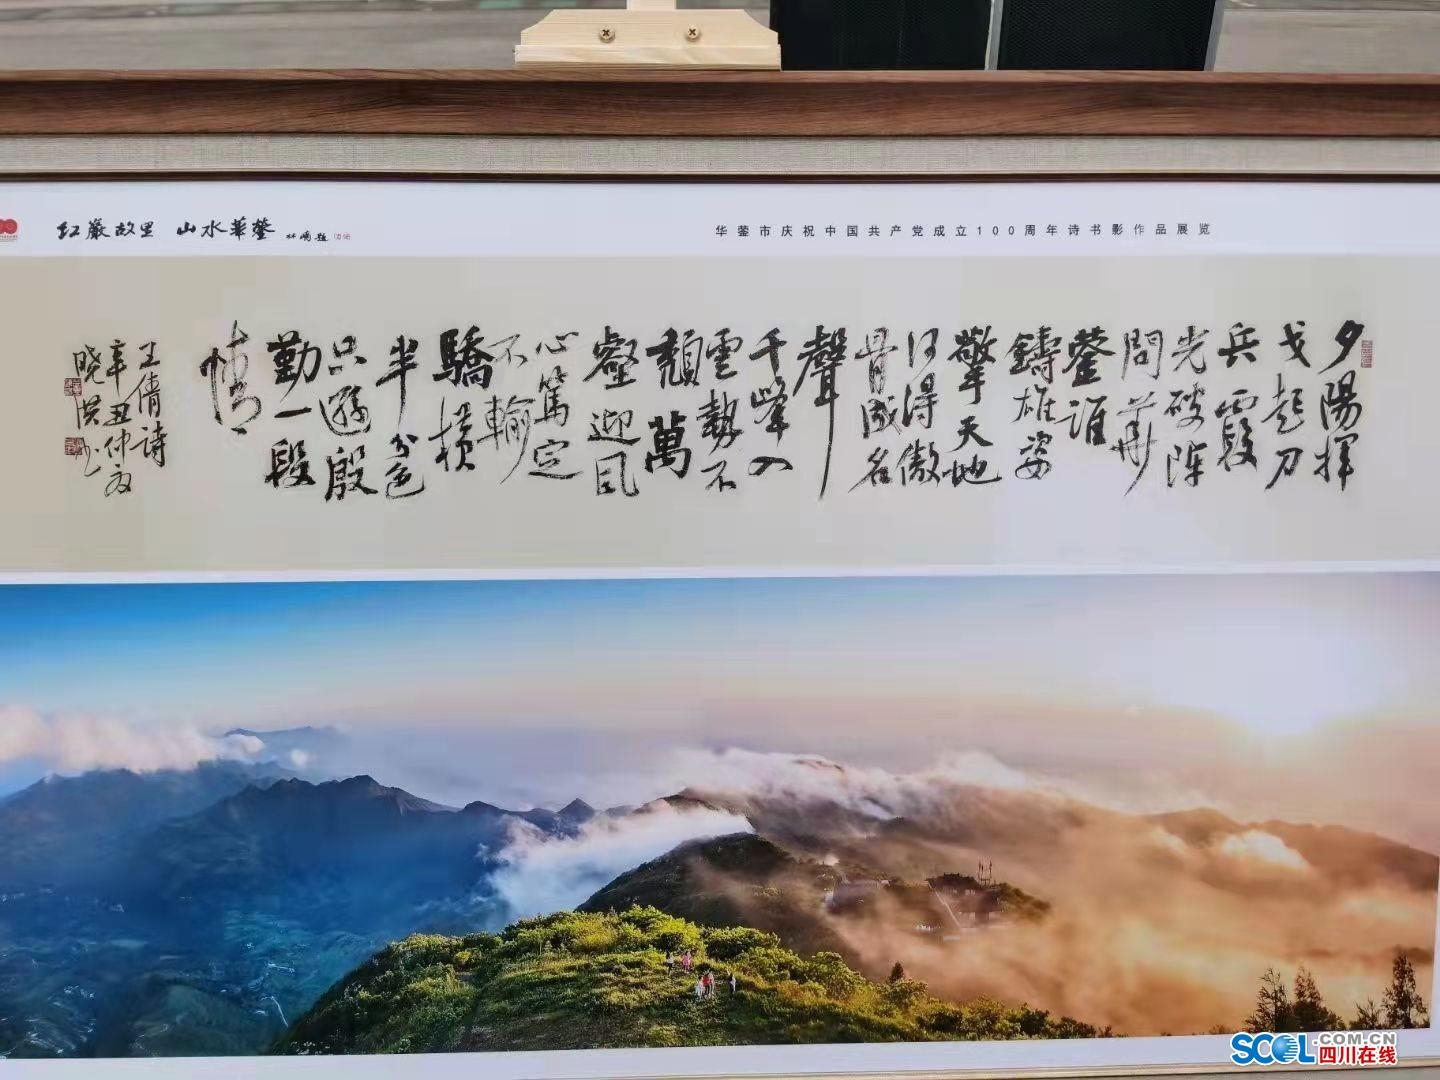 红巖故里 山水華蓥
华蓥市庆祝中国共产党成立100周年诗书影作品展览
夕陽揮
戈起刀
兵霞
光破陣
問華
蓥誰
鑄雄姿
擎天地
何得傲
骨成名
聲
千峰入
雲勢不
頹萬
壑迎風
心篤定
不輸
驕橫
半分色
只遜殷
勤一段
情
王倩詩
辛丑仲夏
晓洪书
SCOL.COM.CN
四川在线